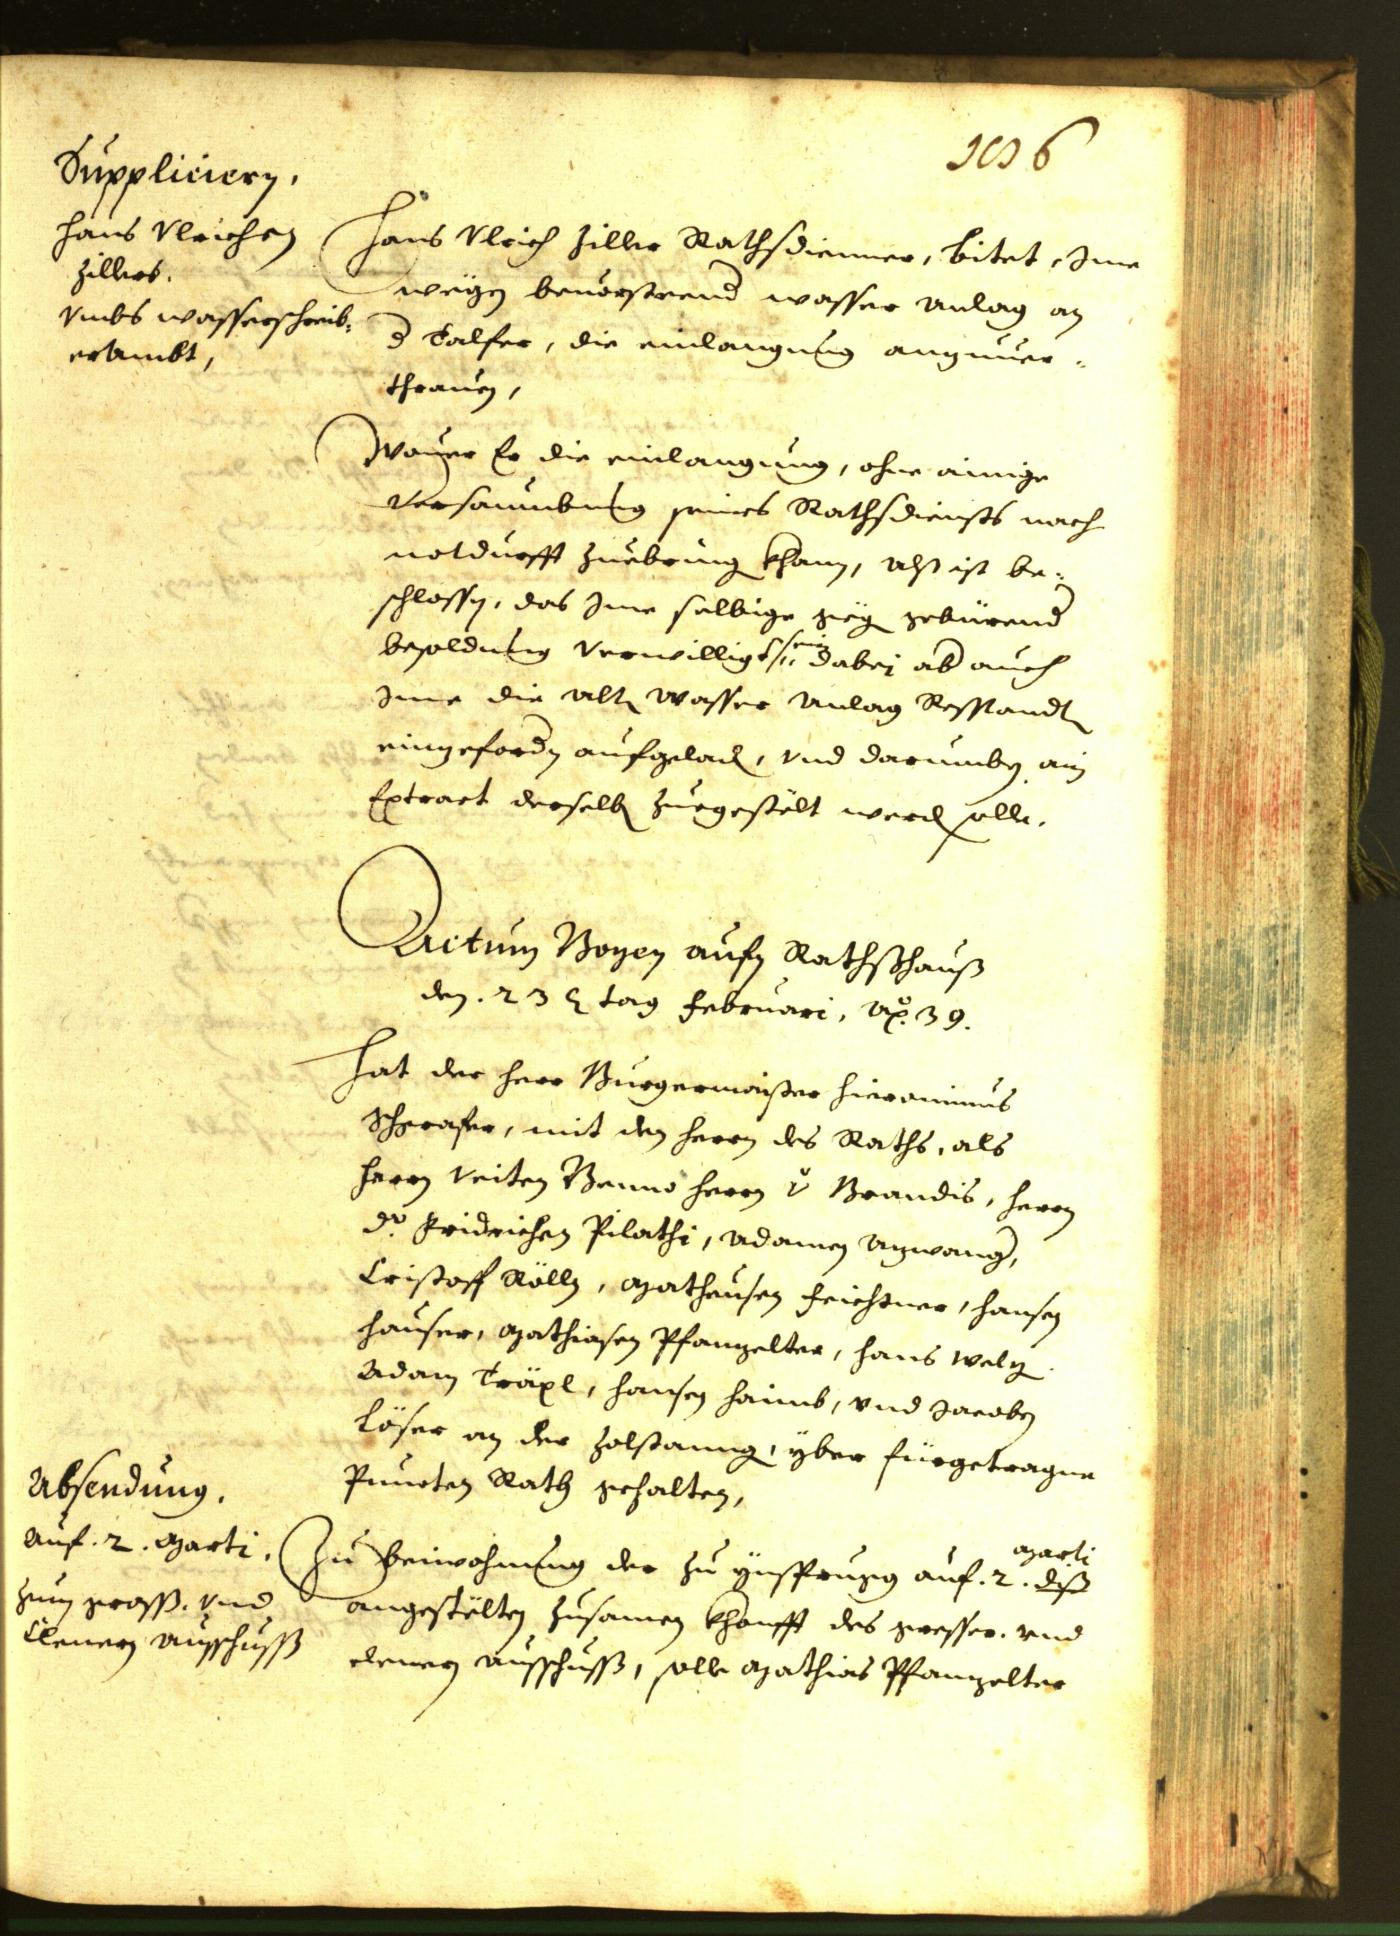 106
Suppliciern,
Hans Ulrichen
Zillers.
umbs wasserschreib-
erambt,
Hans Ulrich Ziller Rathsdienner, bitet, Ime
wegen bevorsteend wasser anlag an
d Talfer, die einlangung anzuver-
thrauen,
Wover Er die einlangung, ohne ainige
versaumbnung seines Rathsdiensts nach
notdurfft zuebringen khann, alß ist be-
schlossen, das Ime selbige gegen gebürend
besoldung verwilligt sein dabei ab auch
Ime die alten wasser anlag Resstandt
einzefordn aufgeladen, und darumben ain
Extract derselben zuegestelt werden solle.
Actum Bozen aufm Rathßhauß
den 23 tag Februari, Ao. 39.
Hat der herr Burgermaister Hieronimus
Schgrafer, mit den herrn des Raths, als
herrn Veiten Benno herrn v Brandis, herrn
Dr. Fridrichen Pilathi, Adamen Azwang,
Cristoff Rölln, Matheusen Feichtner, Hansen
Hauser, Mathiasen Pfanzelter, Hans Welz
Adam Träxl, Hansen Haimb, und Jacoben
Löser an der Zolstanng, yber fürgetragne
Puncten Rath gehalten,
Absendung.
Auf. 2. Marti.
zum gross. und
Clenern ausschuss
Zu beiwohnung der zu Ynsprugg auf. 2. diß Marti
angestelten zusamen khonfft des gresser. und
clenern ausschuss, solle Mathias Pfanzelter